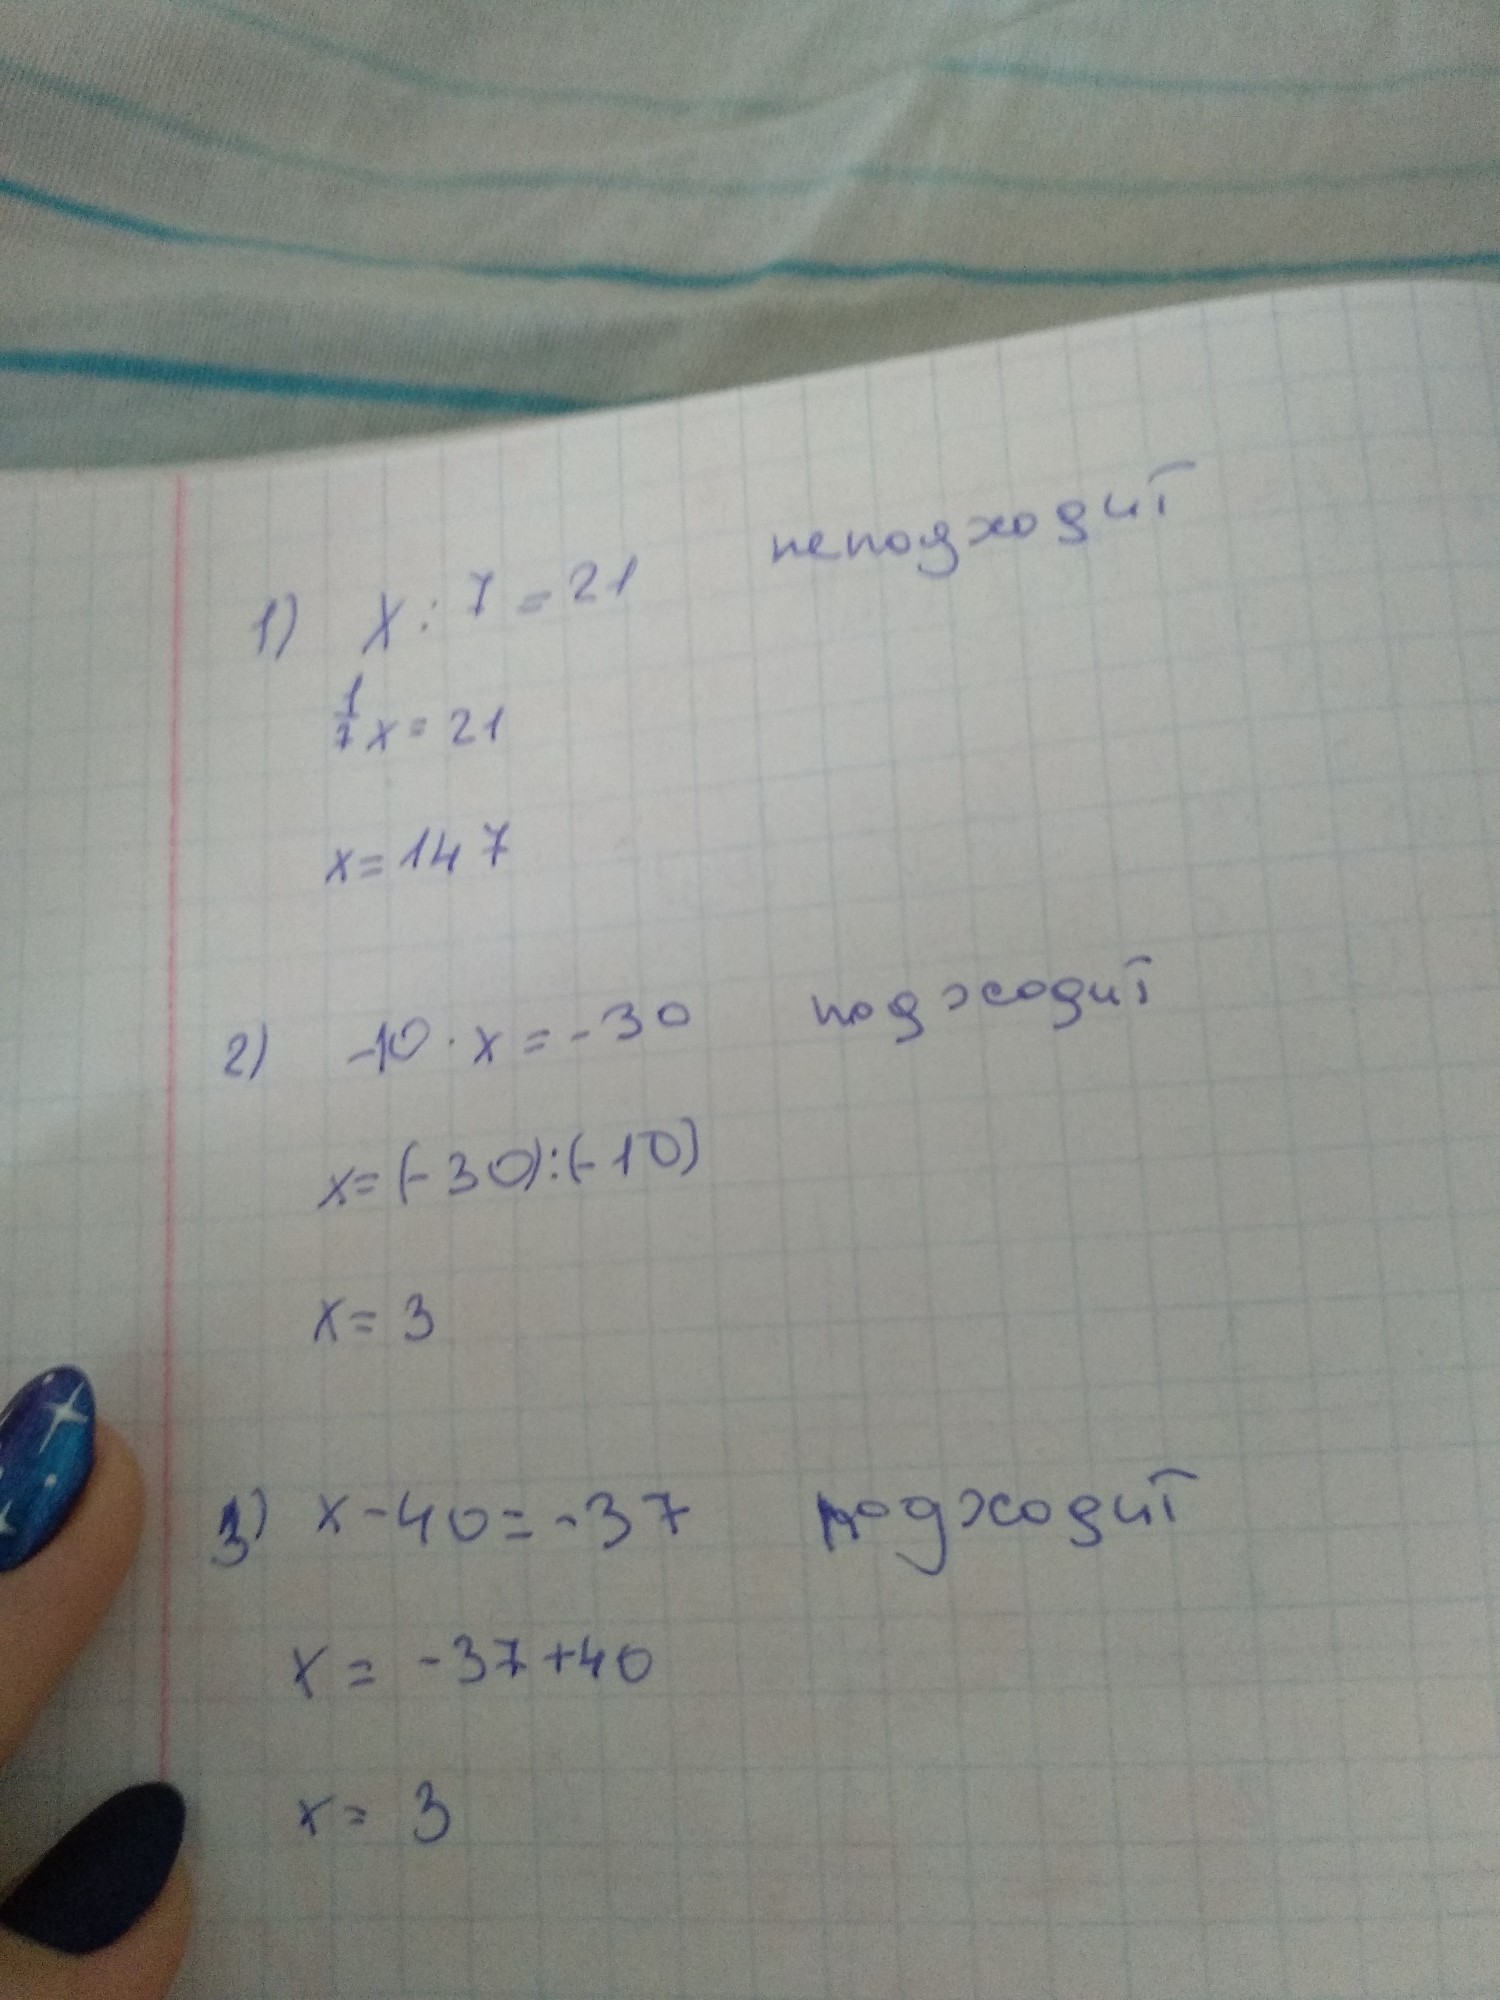 1) x : 7 = 21 неподходит
1/7 x = 21
x = 147
2) -10 · x = -30 подходит
x = (-30):(-10)
x = 3
3) x - 40 = -37 подходит
x = -37+40
x = 3